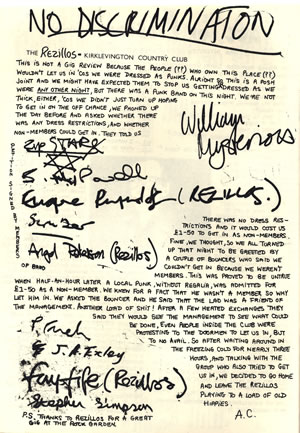 NO DISCRIMINATON
THE REZILLOS - KIRKLEVINGTON COUNTRY CLUB
THIS IS NOT A GIG REVIEW BECAUSE THE PEOPLE (??) WHO OWN THIS PLACE (??)
WOULDN'T LET US IN 'COS WE WERE DRESSED AS PUNKS. ALRIGHT SO THIS IS A POSH
JOINT AND WE MIGHT HAVE EXPECTED THEM TO STOP US GETTING DRESSED AS WE
WERE ANY OTHER NIGHT, BUT THERE WAS A PUNK BAND ON THIS NIGHT. WE'RE NOT
THICK, EITHER, 'COS WE DIDN'T JUST TURN UP HOPING
TO GET IN ON THE OFF CHANCE, WE PHONED UP
THE DAY BEFORE AND ASKED WHETHER THERE
WAS ANY DRESS RESTRICTIONS, AND WHETHER
NON-MEMBERS COULD GET IN. THEY TOLD US
William
Mysterious
PETITION SIGNED BY MEMBERS
OF BAND
(REZILLOS.)
THERE WAS NO DRESS RES-
TRICTIONS AND IT WOULD COST US
£1-50 TO GET IN AS NON-MEMBERS.
FINE, WE THOUGHT, SO WE ALL TURNED
UP THAT NIGHT TO BE GREETED BY
A COUPLE OF BOUNCERS WHO SAID WE
COULDN'T GET IN BECAUSE WE WERENT
MEMBERS. THIS WAS PROVED TO BE UNTRUE
(Rezillos)
WHEN HALF-AN-HOUR LATER A LOCAL PUNK, WITHOUT REGALIA, WAS ADMITTED FOR
£1-50 AS A NON-MEMBER. WE KNEW FOR A FACT THAT HE WASN'T A MEMBER SO WHY
LET HIM IN. WE ASKED THE BOUNCER AND HE SAID THAT THE LAD WAS A FRIEND OF
THE MANAGEMENT. ANOTHER LOAD OF SHIT! AFTER A FEW HEATED EXCHANGES THEY
SAID THEY WOULD SEE THE MANAGEMENT TO SEE WHAT COULD
BE DONE, EVEN PEOPLE INSIDE THE CLUB WERE
PROTESTING TO THE DOORMEN TO LET US IN, BUT
TO NO AVAIL. SO AFTER WAITING AROUND IN
THE FREEZING COLD FOR NEARLY THREE
HOURS, AND TALKING WITH THE
GROUP WHO ALSO TRIED TO GET
US IN, WE DECIDED TO GO HOME
AND LEAVE THE REZILLOS
PLAYING TO A LOAD OF OLD
HIPPIES.
A.C.
Fay Fife (Rezillos)
Stephen Simpson
P.S. THANKS TO REZILLOS FOR A GREAT
GIG AT THE ROCK GARDEN